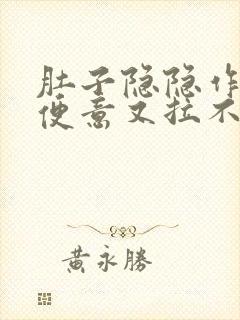 肚子隐隐作
便意又拉不
黄永勝